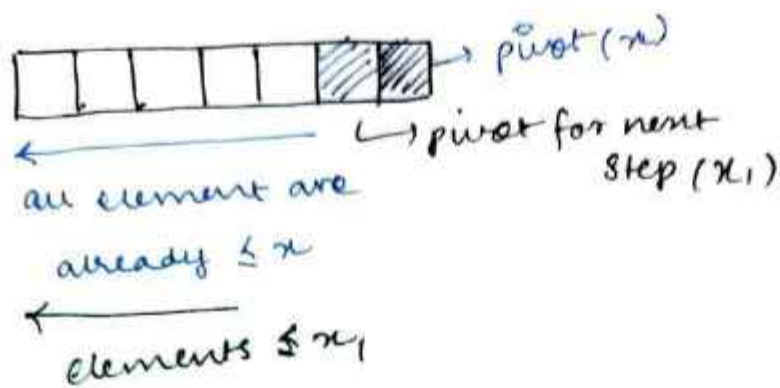 pivot (x)
pivot for next
step (x₁)
all element are
already ≤ x
elements ≤ x₁